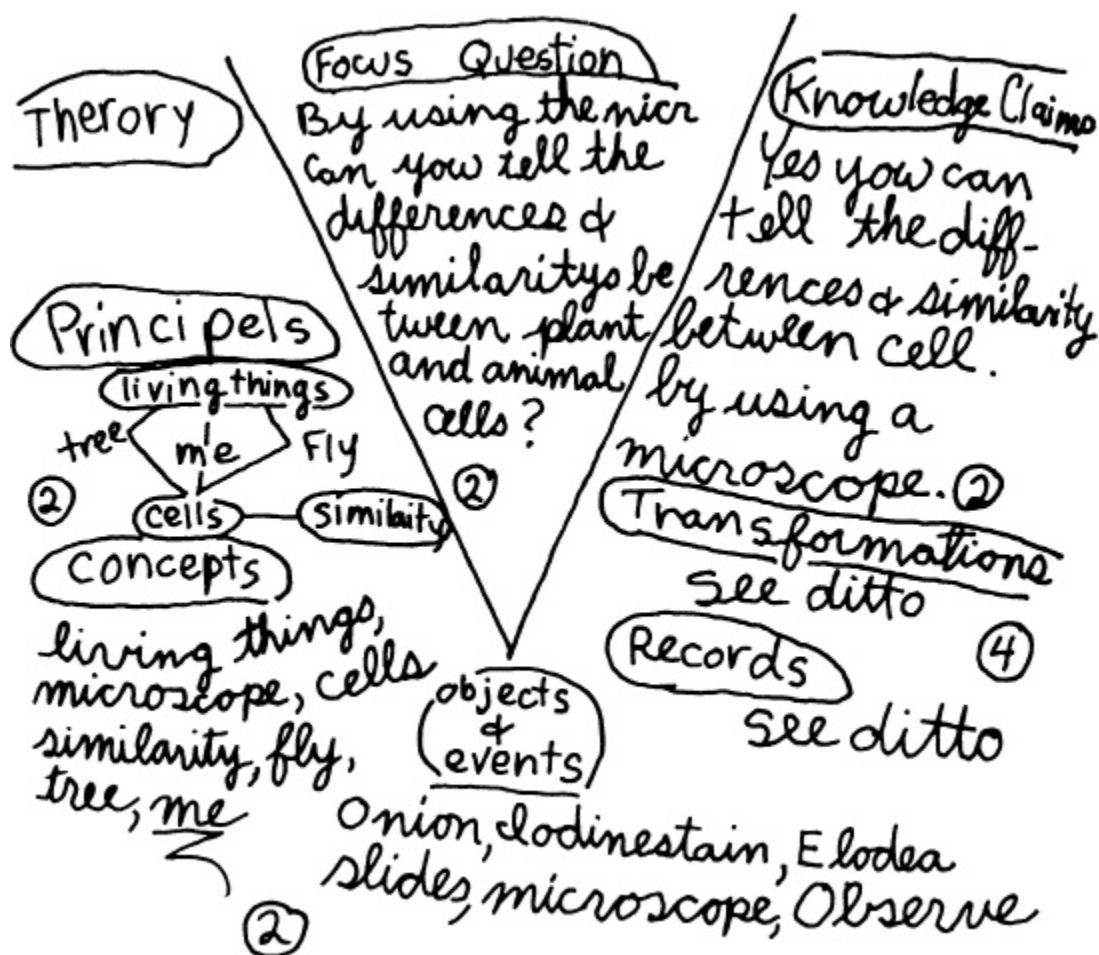 Therory
Principels
living things
tree me Fly
cells similaity
②
Concepts
living things,
microscope, cells
similarity, fly,
tree, me
②
Focus Question
By using the nicr
can you tell the
differences &
similaritys be
tween plant
and animal
cells?
②
objects
&
events
Onion, Iodinestain, Elodea
slides, microscope, Observe
Knowledge Claims
Yes you can
tell the diff-
rences & similarity
between cell.
by using a
microscope. ②
Transformations
See ditto
④
Records
See ditto